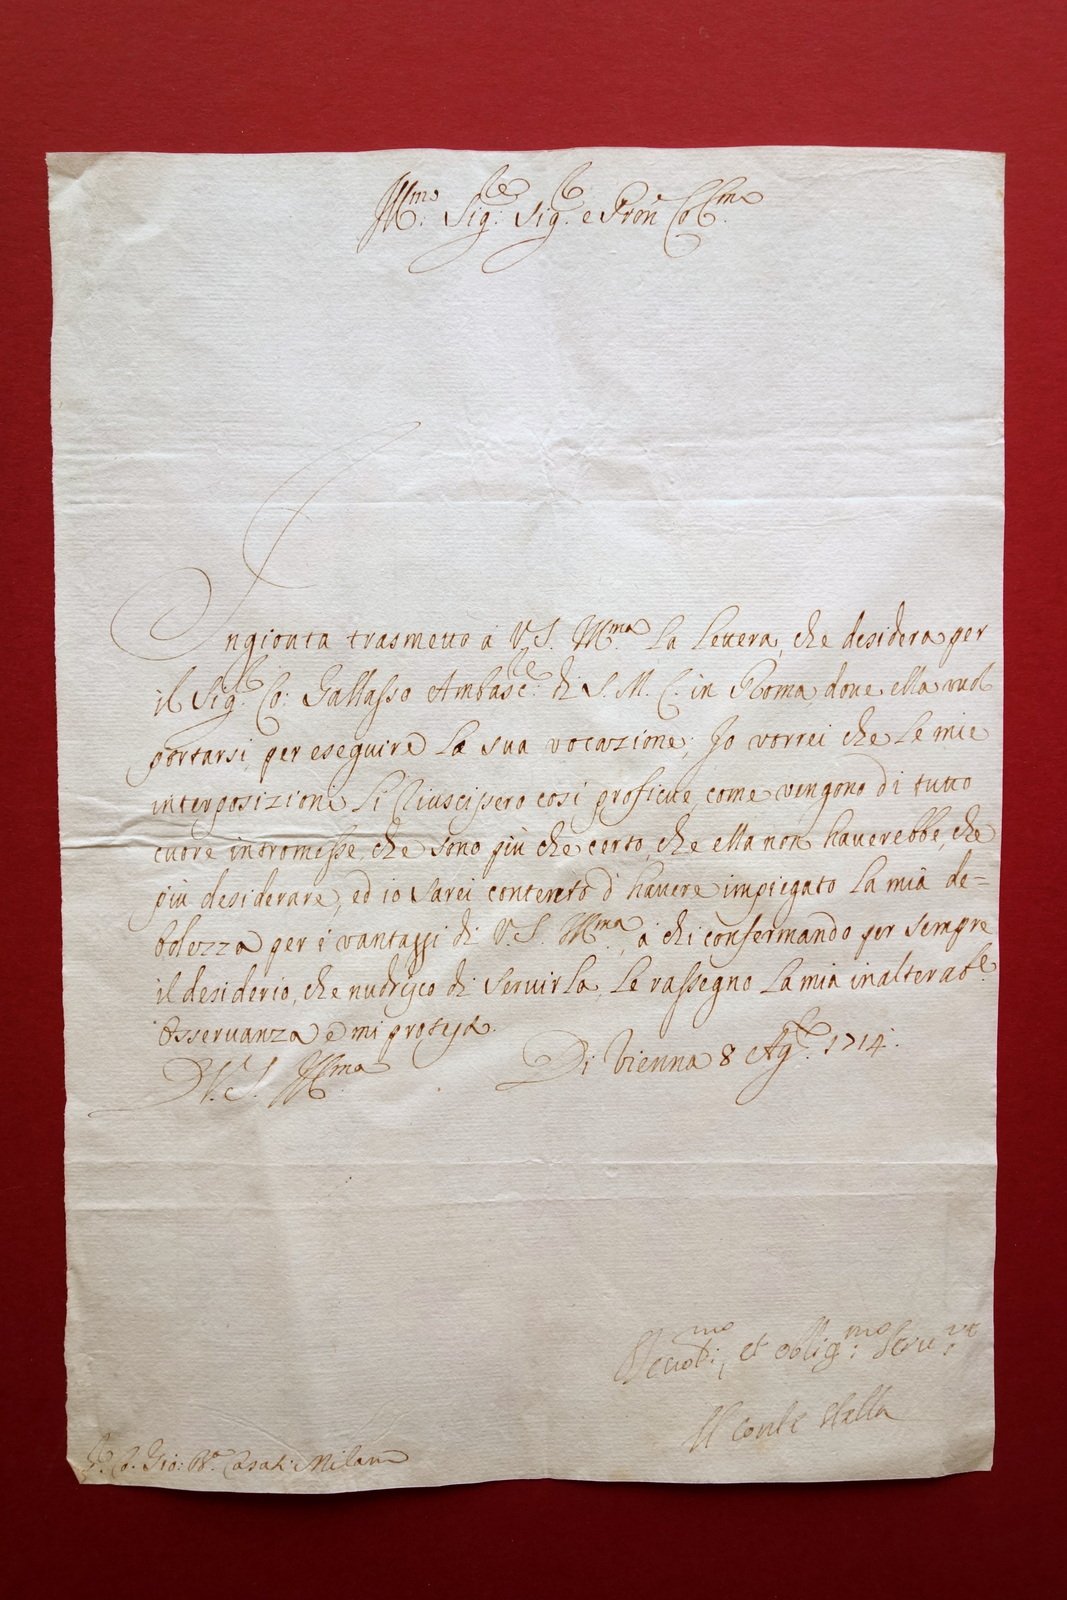 Ill.mo Sig.re Sig.re e Pron Col.mo
Ingionta trasmetto à V.S. Ill.ma la lettera, che desidera per
il Sig.r Co: Gallasso Ambasc.re di S.M.C. in Roma, dove ella vuol
portarsi, per eseguire la sua vocazione; Io vorrei che le mie
interposizioni li riuscissero così proficue, come vengono di tutto
cuore intromesse, che sono più che certo, che ella non haverebbe, che
più desiderare, ed io sarei contento d'havere impiegato la mia de=
bolezza per i vantaggi di V.S. Ill.ma, à chi confermando per sempre
il desiderio, che nudrisco di servirla, le rassegno la mia inalterab.le
Osservanza e mi protesto.
D V.S. Ill.ma
Di Vienna 8 Ag.to 1714.
Devot.mo, et oblig.mo Seru.re
Il conte Stella
S.r Co. Gio: B.a Casati Milano